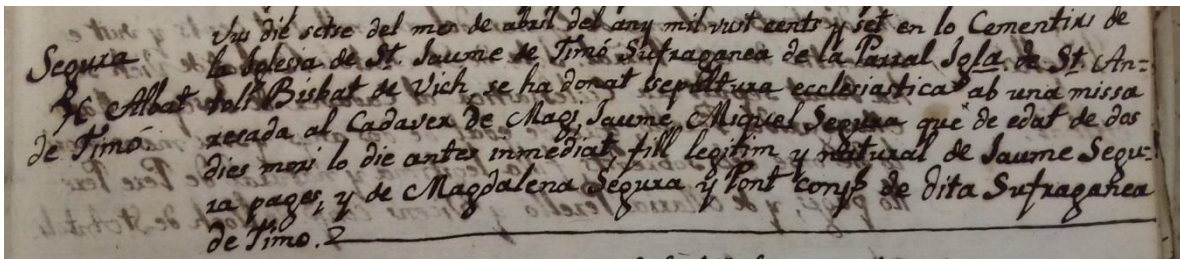 Vuy die setse del mes de abril del any mil vuit cents y set en lo Cementiri de
Segura
la Iglesia de St. Jaume de Timó Sufraganea de la Parral Igla. de St. An=
Albat
toli Bisbat de Vich, se ha donat sepultura ecclesiastica ab una missa
de Timó
resada al Cadaver de Magi, Jaume, Miquel Segura que de edat de dos
dies mori lo die antes inmediat, fill legitim y natural de Jaume Segu=
ra pages, y de Magdalena Segura y Pont de dita Sufraganea
de Timo.